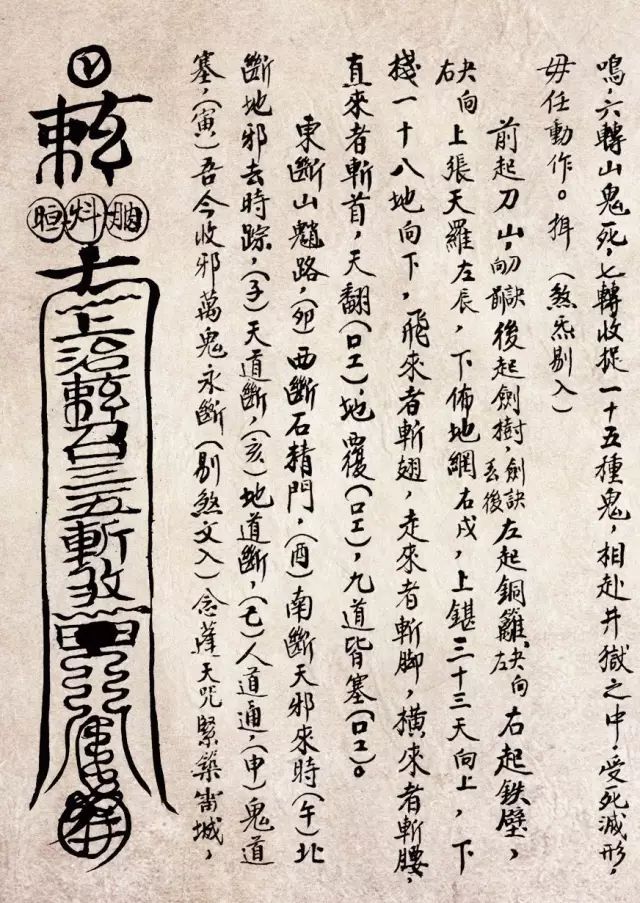 鳴，六轉山鬼死，七轉收捉一十五種鬼，相赴井獄之中，受死滅形，
毋任動作。揖（煞炁剔入）
前起刀山，向前刀訣後起劍樹，丟後劍訣左起銅籬，左向決右起鉄壁，
右向決上張天羅左辰，下佈地網右戌，上鍖三十三天向上，下
棧一十八地向下，飛來者斬翅，走來者斬脚，橫來者斬腰，
直來者斬首，天翻（口工），地覆（口工），九道皆塞（口工）。
東斷山魈路，（卯）西斷石精門，（酉）南斷天邪來時（午）北
斷地邪去時踪，（子）天道斷，（亥）地道斷，（巳）人道通，（申）鬼道
塞，（寅）吾今收邪萬鬼永斷（剔煞文入）念蓬天咒緊築甯城，
敕
上治敕召三五斬煞